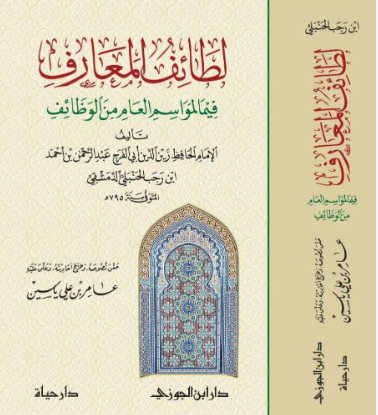 لطائف المعارف
فيما لمواسم العام من الوظائف
تأليف
الإمام الحافظ زين الدين أبي الفرج عبد الرحمن بن أحمد
ابن رجب الحنبلي الدمشقي
المتوفى سنة ٧٩٥هـ
حقق نصوصه وخرج أحاديثه وعلق عليه
عامر بن علي ياسين
دار ابن الجوزي
دار حياة
ابن رجب الحنبلي
لطائف المعارف
فيما لمواسم العام
من الوظائف
حقق نصوصه وخرج أحاديثه وعلق عليه
عامر بن علي ياسين
دار ابن الجوزي
دار حياة